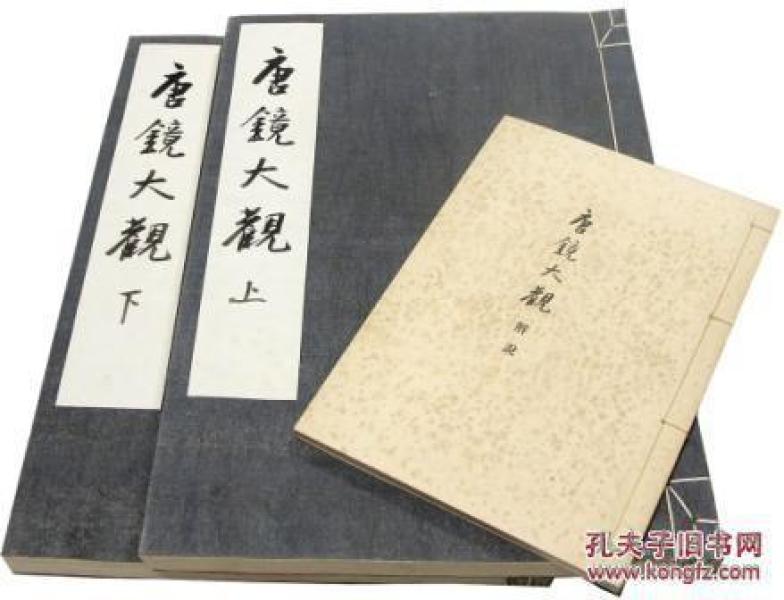 唐鏡大觀 下
唐鏡大觀 上
唐鏡大觀 解說
孔夫子旧书网
www.kongfz.com